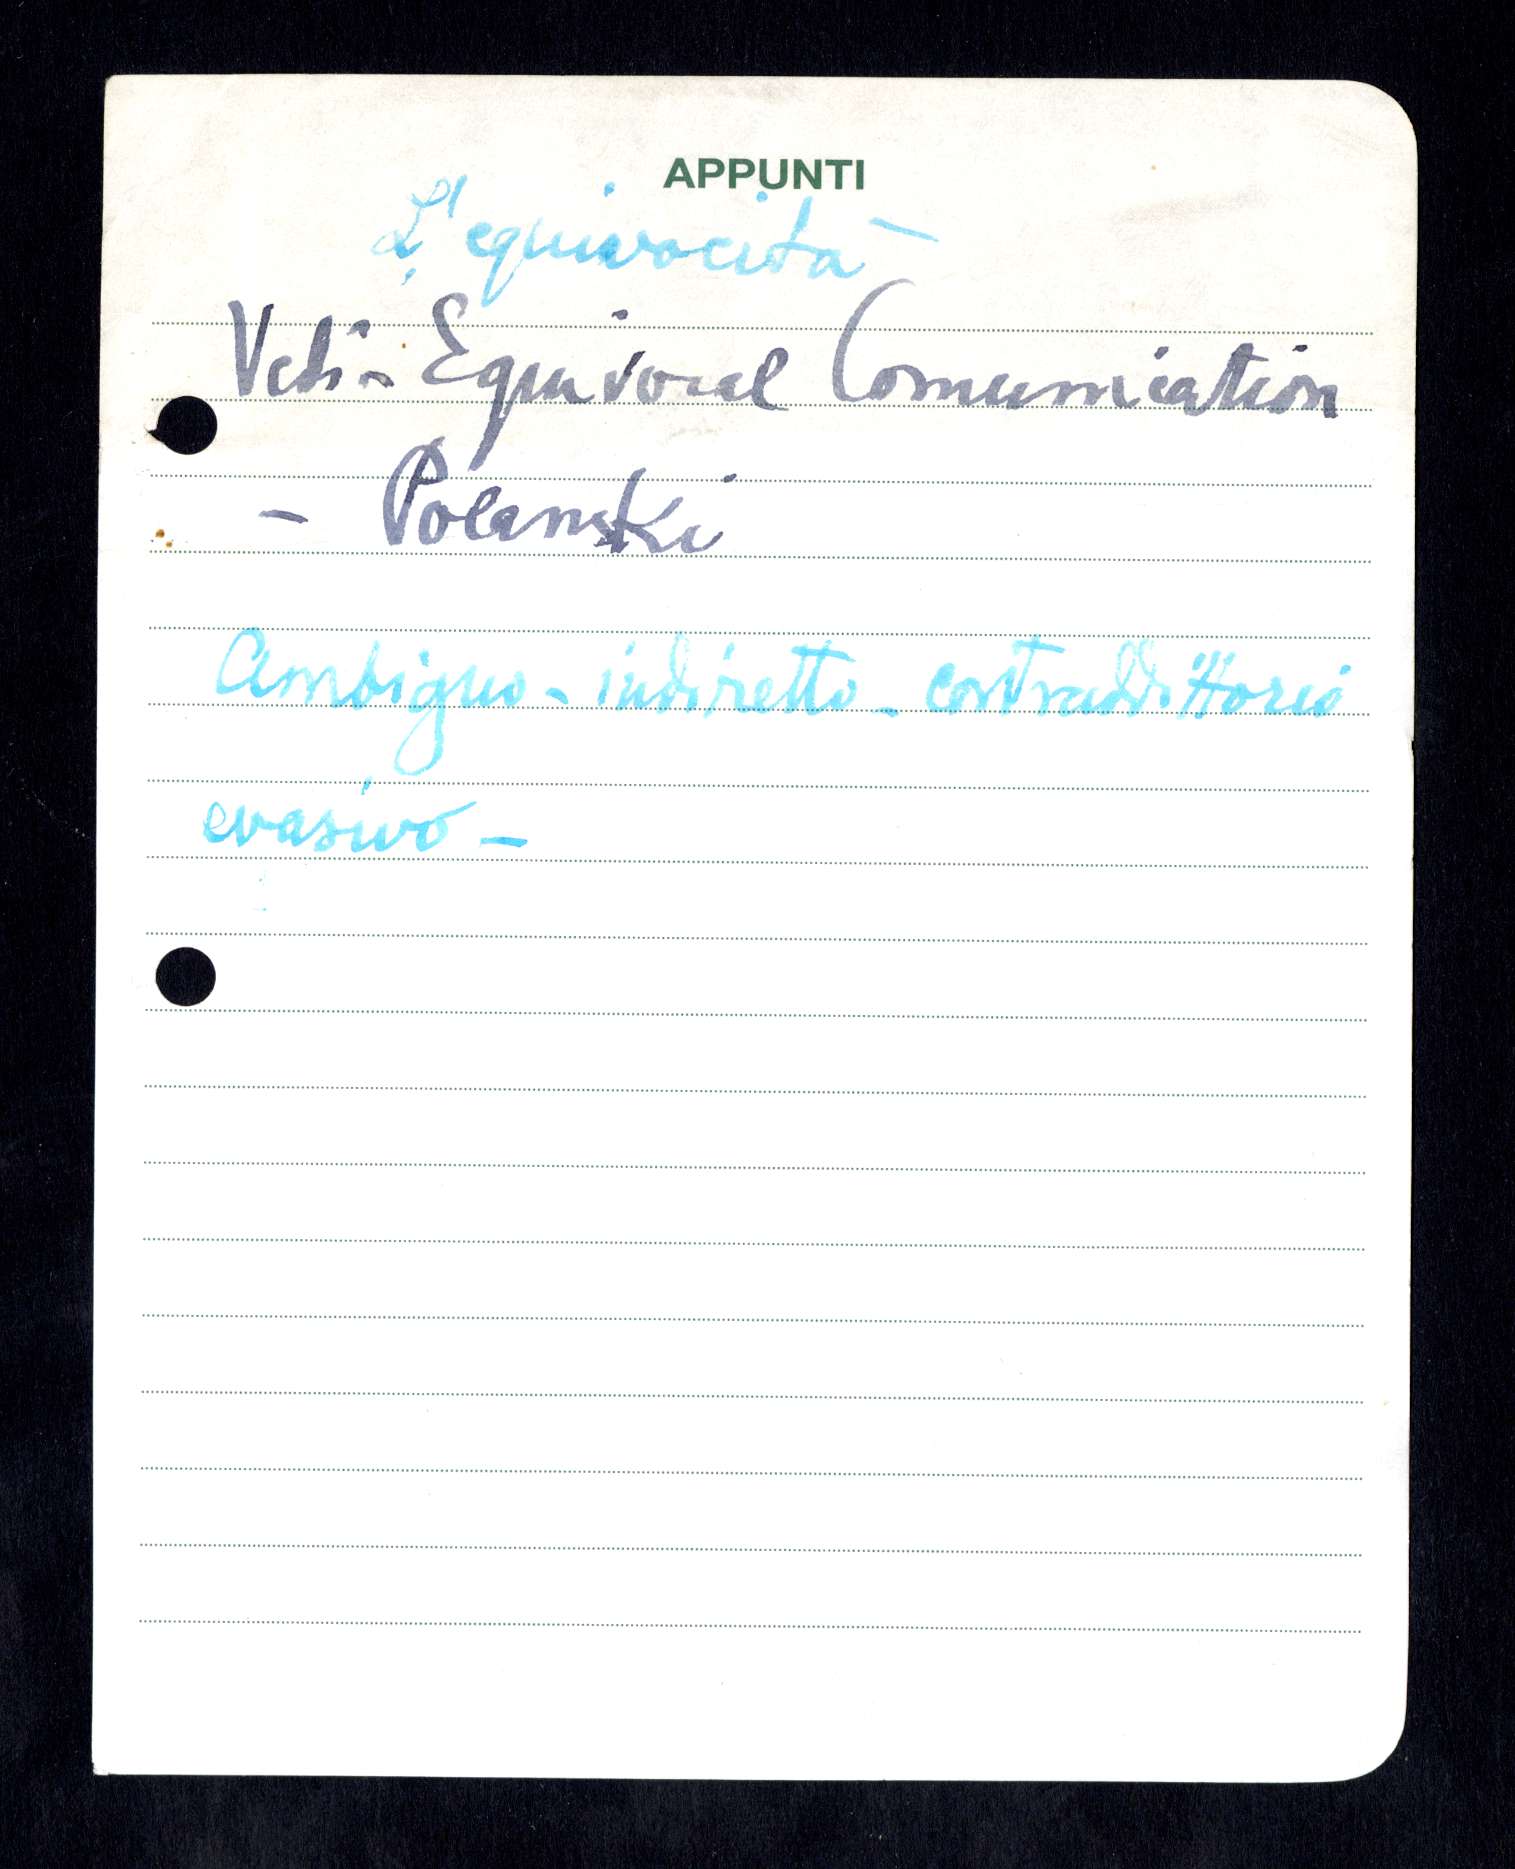 APPUNTI
L'equivocità -
Vedi - Equivocal Comunication
- Polanski
Ambiguo - indiretto - contraddittorio
evasivo -